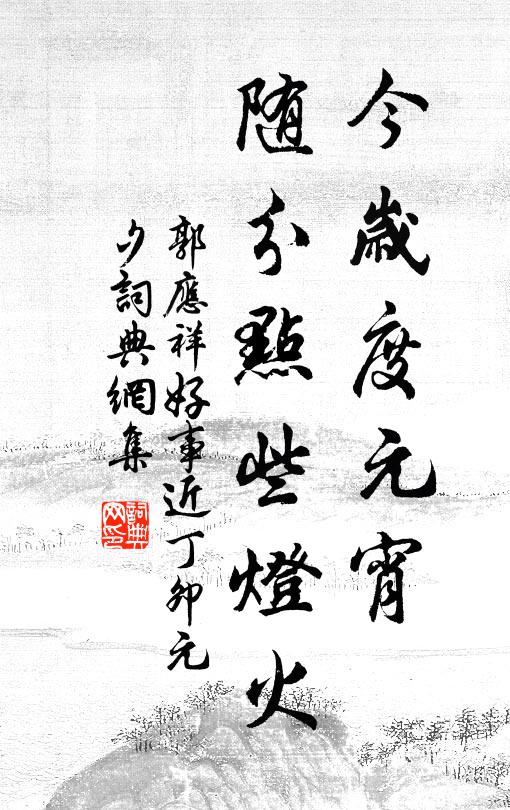 今歲度元宵
隨分點些燈火
郭應祥好事近丁卯元
夕詞典網集
詞典
网印